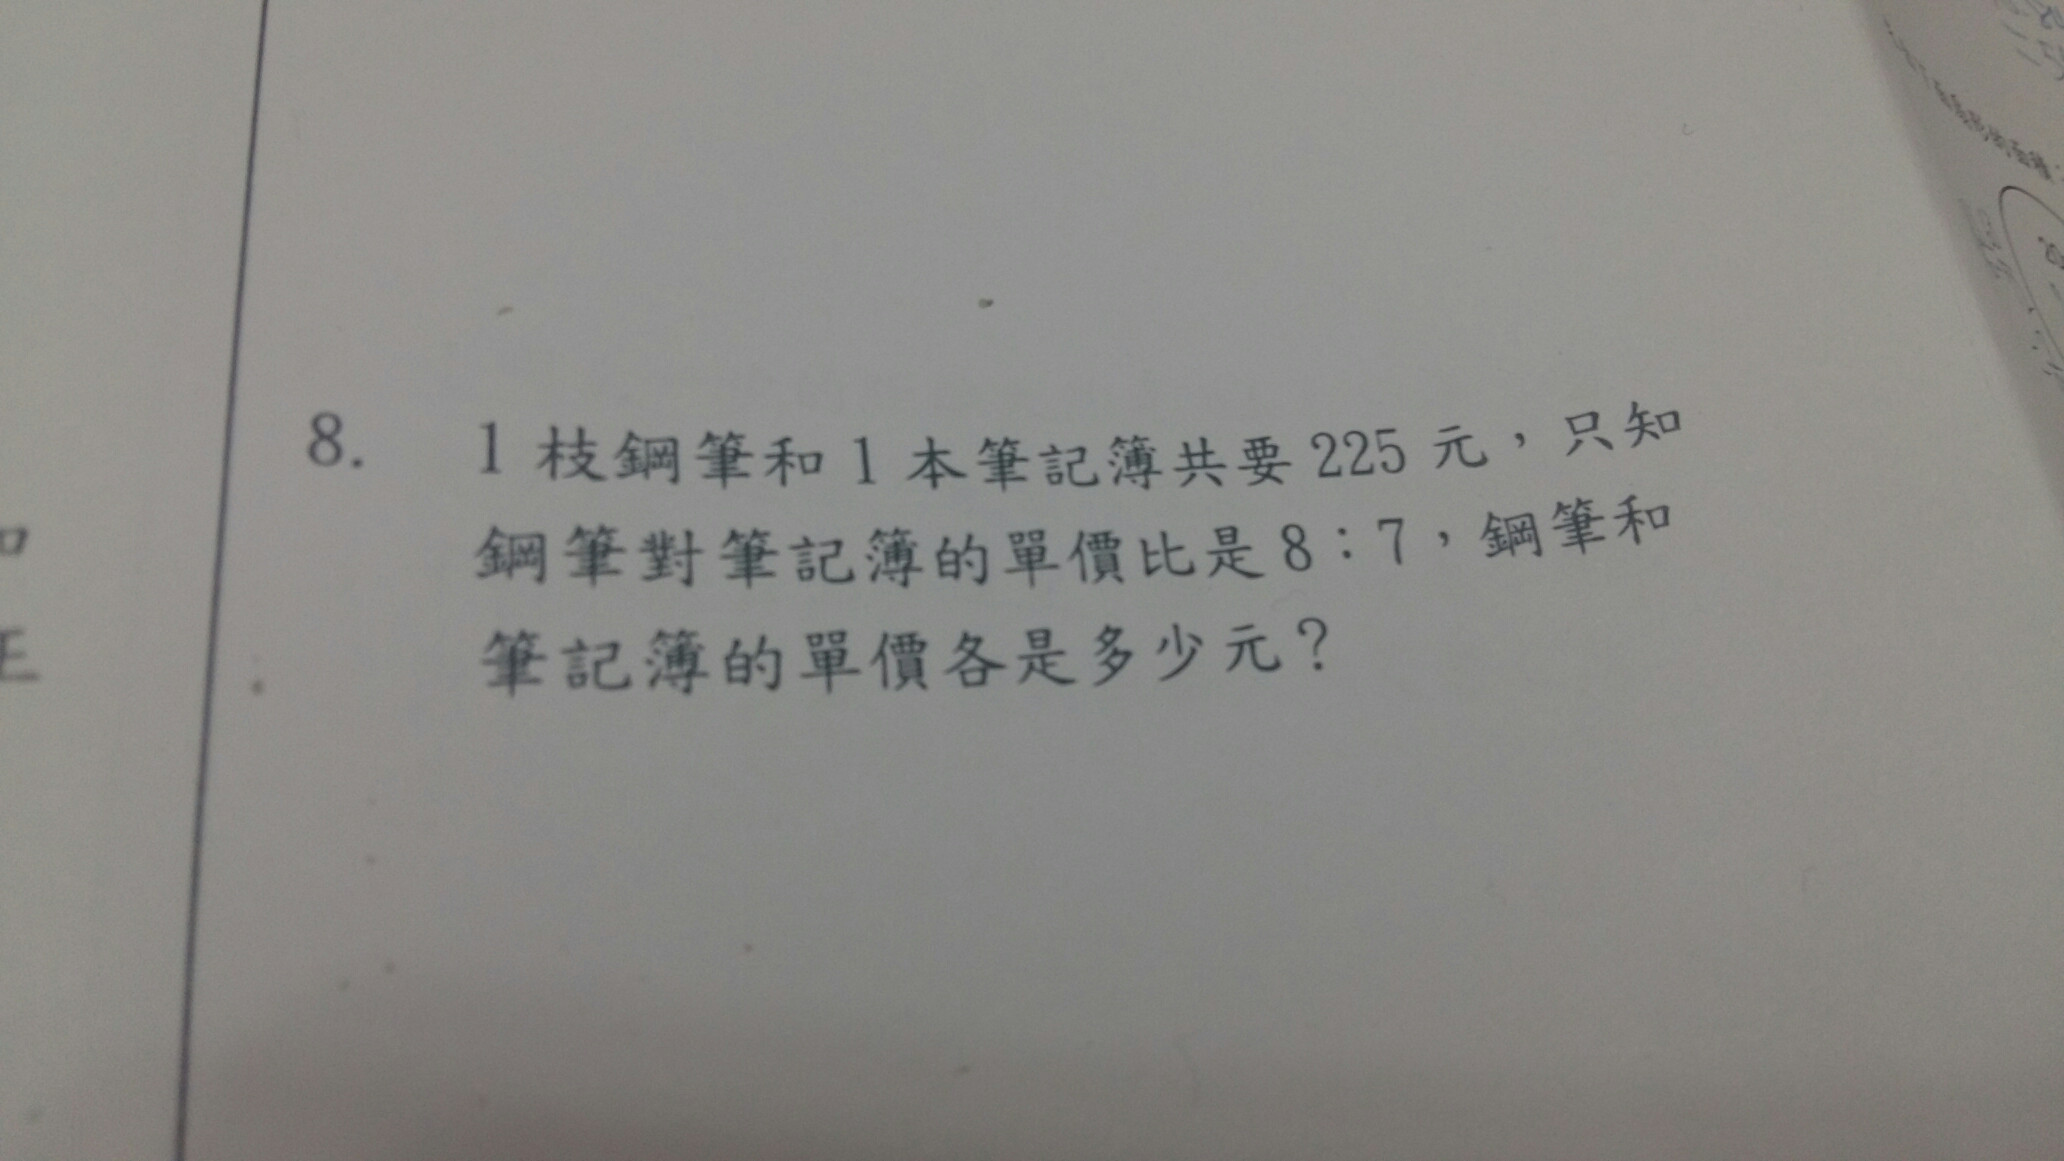 8. 1 枝鋼筆和 1 本筆記簿共要 225 元，只知
鋼筆對筆記簿的單價比是 8：7，鋼筆和
筆記簿的單價各是多少元？